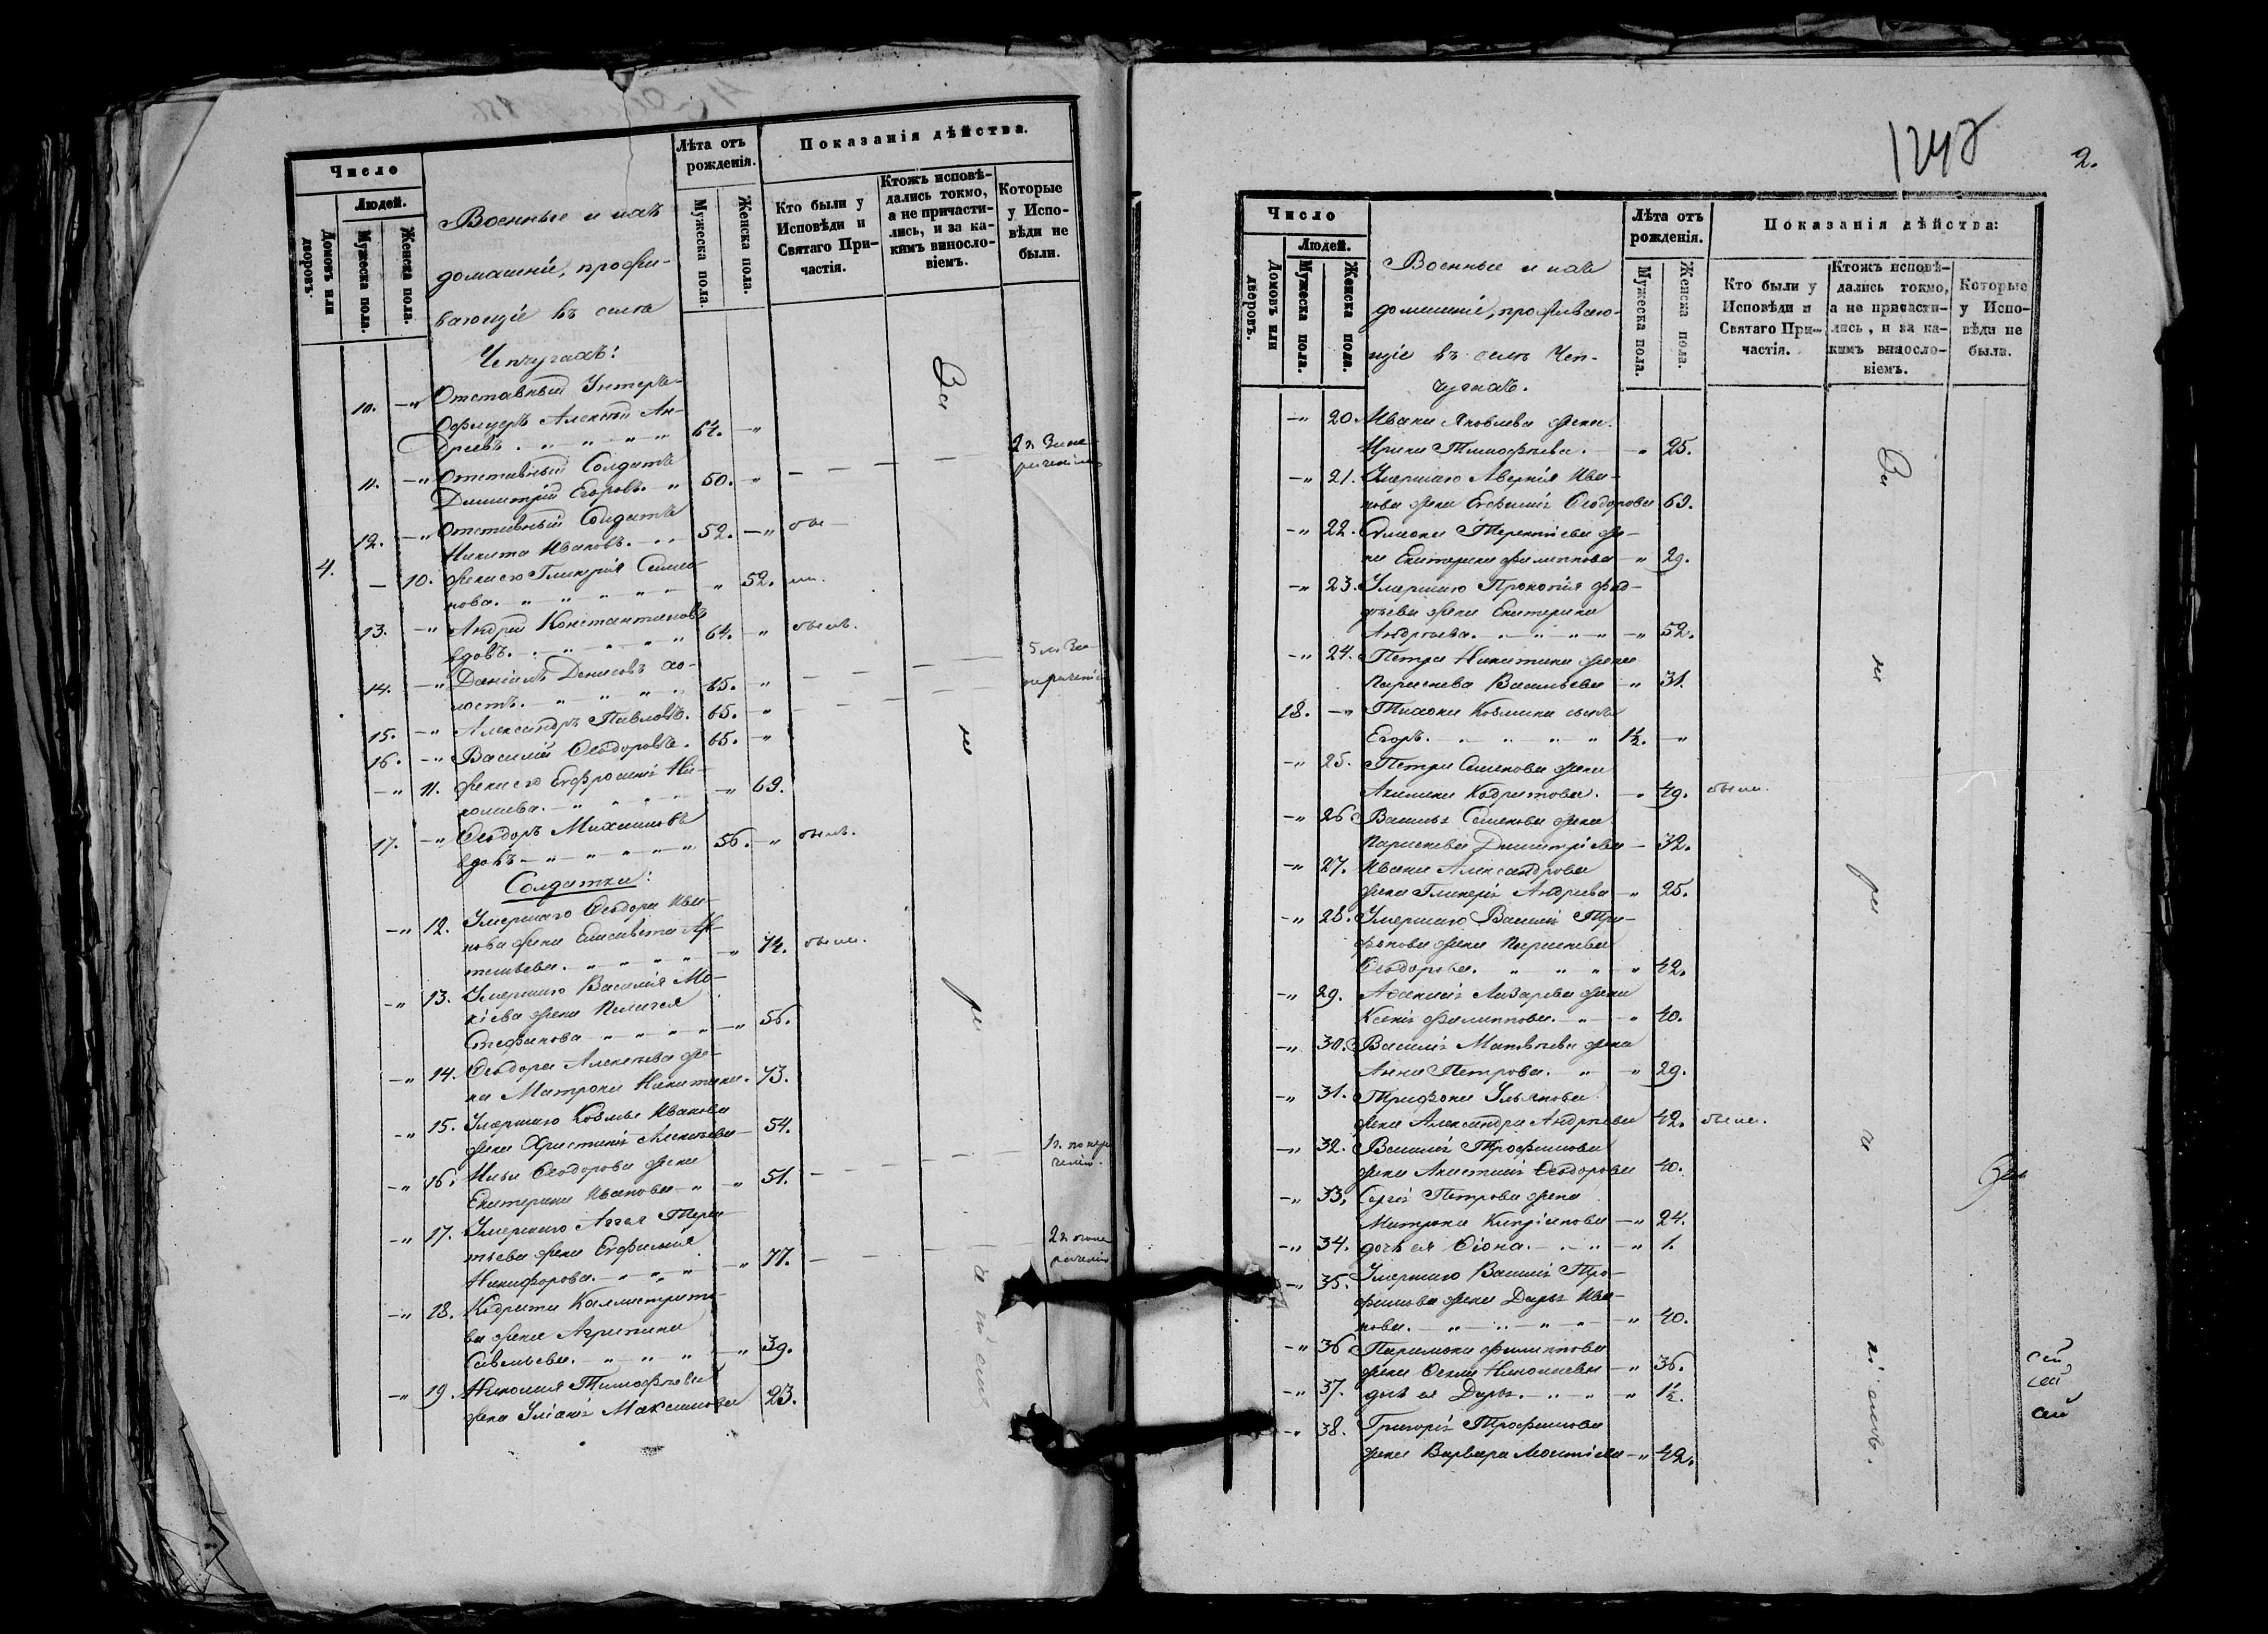 Число
Людей.
Домовъ или дворовъ.
Мужеска пола.
Женска пола.
Военные и ихъ
домашніе, прожи-
вающіе въ селѣ
Чепчугахъ:
Лѣта отъ рожденія.
Мужеска пола.
Женска пола.
Показанія дѣйства.
Кто были у Исповѣди и Святаго При-частія.
Ктожъ исповѣ-дались токмо, а не причасти-лись, и за ка-кимъ винослo-віемъ.
Которые у Испо-вѣди не были.
10. -„ Отставный Унтеръ-
Офицеръ Алексѣй Ан-
дреевъ . „ „ „ 64. -„
11. -„ Отставный Солдатъ
Димитрій Егоровъ. „ 50. -„
12. -„ Отставный Солдатъ
Никита Ивановъ. - „ 52. -„
4. - 10. жена его Гликерія Симео-
нова. „ „ „ „ 52.
13. -„ Андрей Константиновъ
вдовъ. „ „ „ 64. „ былъ.
14. -„ Даніилъ Денисовъ хо-
лостъ. „ „ „ 65. „
15. -„ Александръ Павловъ. 65. -„
16. -„ Василій Ѳеодоровъ. 65. -„
-„ 11. жена его Евфросинія Ни-
колаева. „ „ „ -„ 69.
17. -„ Ѳеодоръ Михаиловъ
вдовъ - „ „ „ „ 56. -„ былъ.
Солдатки:
-„ 12. Умершаго Ѳеодора Ива-
нова жена Елисавета
-„ 74. была.
-„ 13. Умершаго Василія Мо-
кіева жена Пелагея
Стефанова - „ „ „ -„ 56.
-„ 14. Ѳеодора Алексѣева же-
на Матрона Никитина. 73.
-„ 15. Умершаго Козмы Иванова
жена Христинія Алексѣева 54.
-„ 16. Ильи Ѳеодорова жена
Екатерина Иванова - „ „ 51. -
-„ 17. Умершаго
жена Евфимія
Никифорова. - „ „ „ 77. -
-„ 18. Кодрата Каллистрато-
ва жена Агрипина
Савельева. „ „ „ -„ 39.
-„ 19. Николая Тимофѣева
жена Уліанія Максимова 23.
2.
Число
Людей.
Домовъ или дворовъ.
Мужеска пола.
Женска пола.
Военные и ихъ
домашніе, проживаю-
щіе въ селѣ Чеп-
чугахъ.
Лѣта отъ рожденія.
Мужеска пола.
Женска пола.
Показанія дѣйства:
Кто были у Исповѣди и Святаго При-частія.
Ктожъ исповѣ-дались токмо, а не причасти-лись, и за ка-кимъ винослo-віемъ.
Которые у Испо-вѣди не были.
-„ 20. Ивана Яковлева жена
Ирина Тимофѣева. - „ 25.
-„ 21. Умершаго Аверкія Ива-
нова жена Евфимія Ѳеодорова 63.
-„ 22. Симона Терентіева же-
на Екатерина Филиппова - „ 29.
-„ 23. Умершаго Прокопія Фад-
дѣева жена Екатерина
Андреева. „ „ „ -„ 52.
-„ 24. Петра Никитина жена
Параскева Васильева - „ 31.
18. -„ Тихона Козмина сынъ
Егоръ. „ „ „ 1½. -„
-„ 25. Петра Семенова жена
Акилина Кодратова. - „ 49. была.
-„ 26. Василья Семенова жена
Параскева Димитріева - 32.
-„ 27. Ивана Александрова
жена Гликерія Андреева - „ 25.
-„ 28. Умершаго Василія Три-
фонова жена Параскева
Ѳеодорова. „ „ „ 42.
-„ 29. Аѳанасія Лазарева жена
Ксенія Филиппова. „ „ 40.
-„ 30. Василія Матвѣева жена
Анна Петрова. „ „ 29.
-„ 31. Трифона Ульянова
жена Александра Андреева 42. была.
-„ 32. Василія Трофимова
жена Анастасія Ѳеодорова 40.
-„ 33. Сергія Петрова жена
Матрона Кипріанова -„ 24.
-„ 34. дочь ея Ѳіона. „ „ „ 1.
-„ 35. Умершаго Василія Тро-
фимова жена Дарья Ива-
нова. „ „ „ -„ 40.
-„ 36. Парамона Филиппова
жена Ѳекла Николаева -„ 36.
-„ 37. дочь ея Дарья. „ „ „ 1½.
-„ 38. Григорія Трофимова
жена Варвара Моисѣева -„ 42.